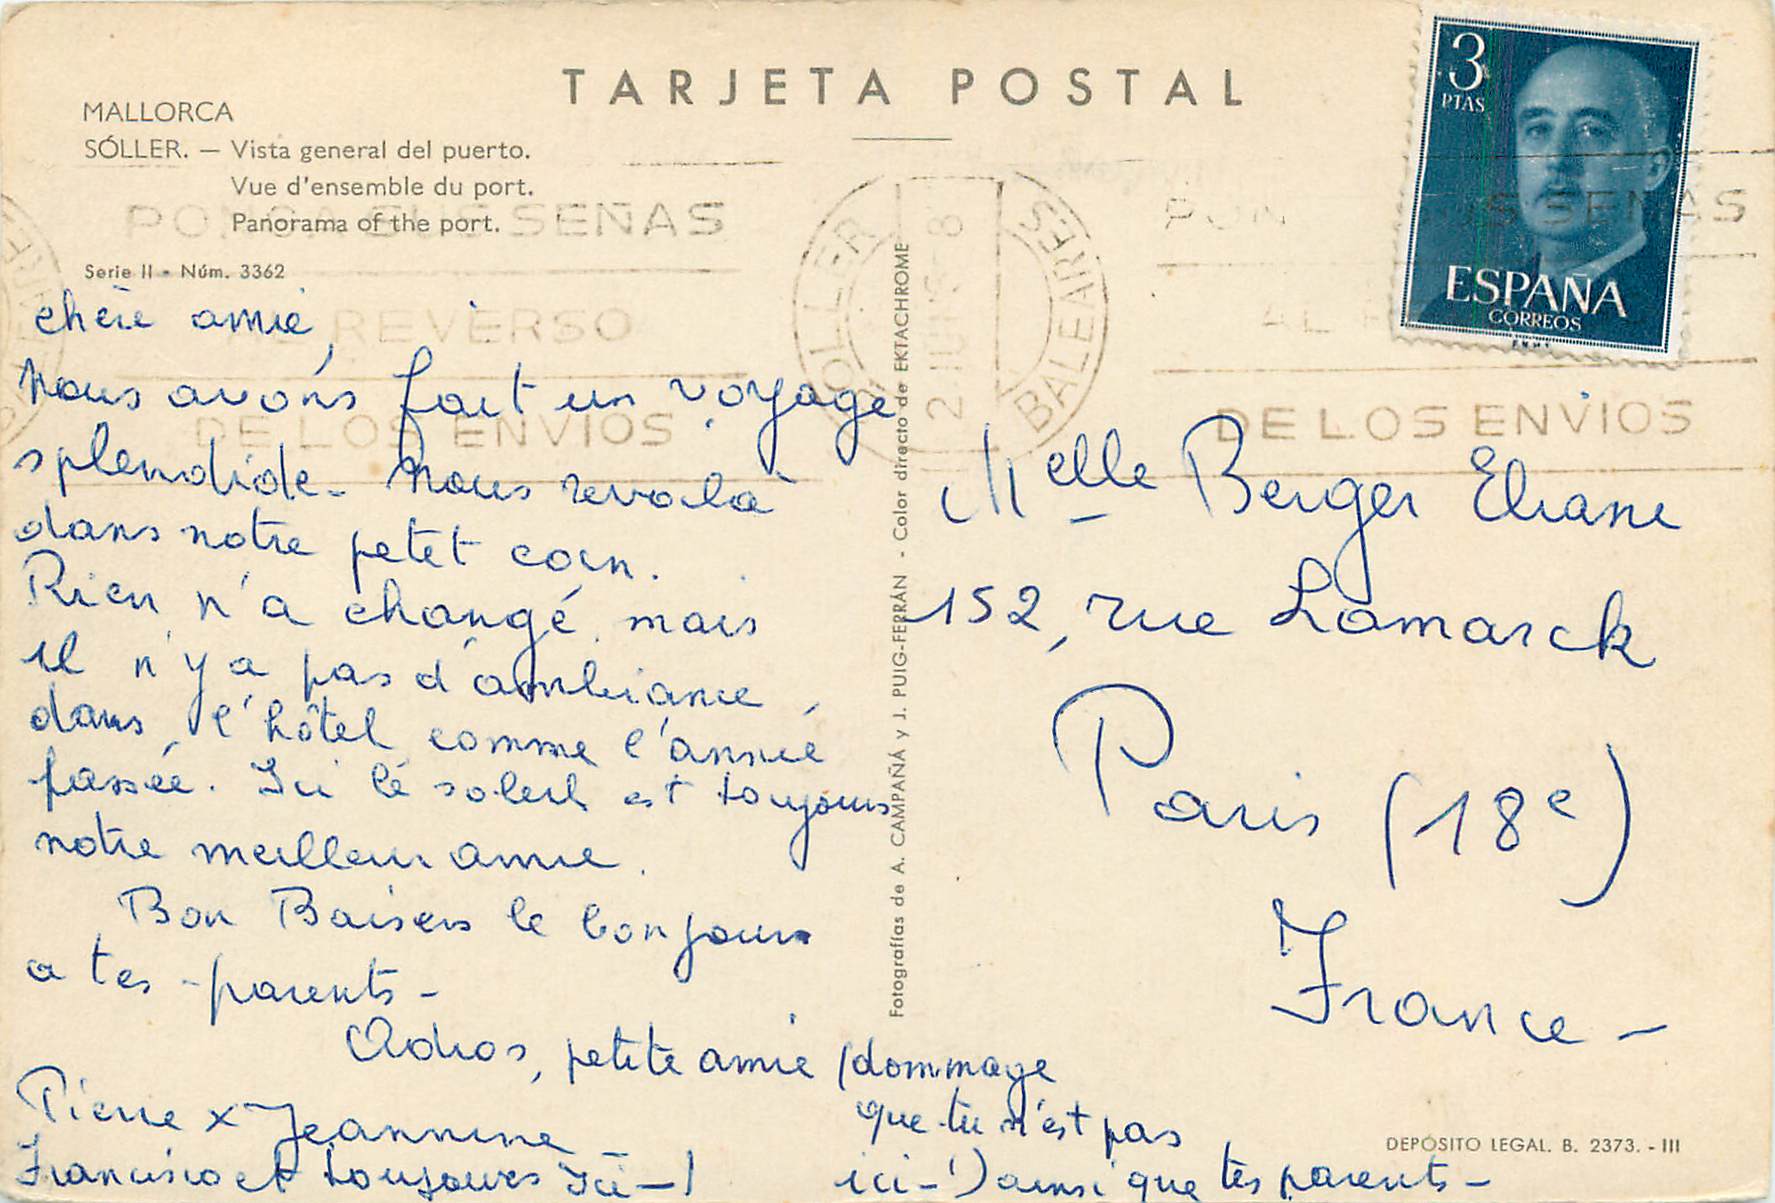 TARJETA POSTAL
MALLORCA
SÓLLER. — Vista general del puerto.
Vue d'ensemble du port.
Panorama of the port.
Serie II - Núm. 3362
3
PTAS
ESPAÑA
CORREOS
F.N.M.T.
PONGA SUS SEÑAS
AL REVERSO
DE LOS ENVIOS
SOLLER
BALEARES
PON S SEÑAS
AL R
DE LOS ENVIOS
chère amie,
Nous avons fait un voyage
splendide - Nous revoilà
dans notre petit coin.
Rien n'a changé, mais
il n'y a pas d'ambiance,
dans l'hôtel comme l'année
passée. Ici le soleil est toujours
notre meilleur amie.
Bon Baisers le bonjour
a tes parents -
Adios, petite amie (dommage
que tu n'est pas
ici - !) ainsi que tes parents -
Pierre x Jeannine
Francisco et toujours Ici - !
Melle Berger Eliane
152, rue Lamarck
Paris (18e)
France -
Fotografías de A. CAMPAÑÁ y J. PUIG-FERRÁN - Color directo de EKTACHROME
DEPÓSITO LEGAL. B. 2373. - III